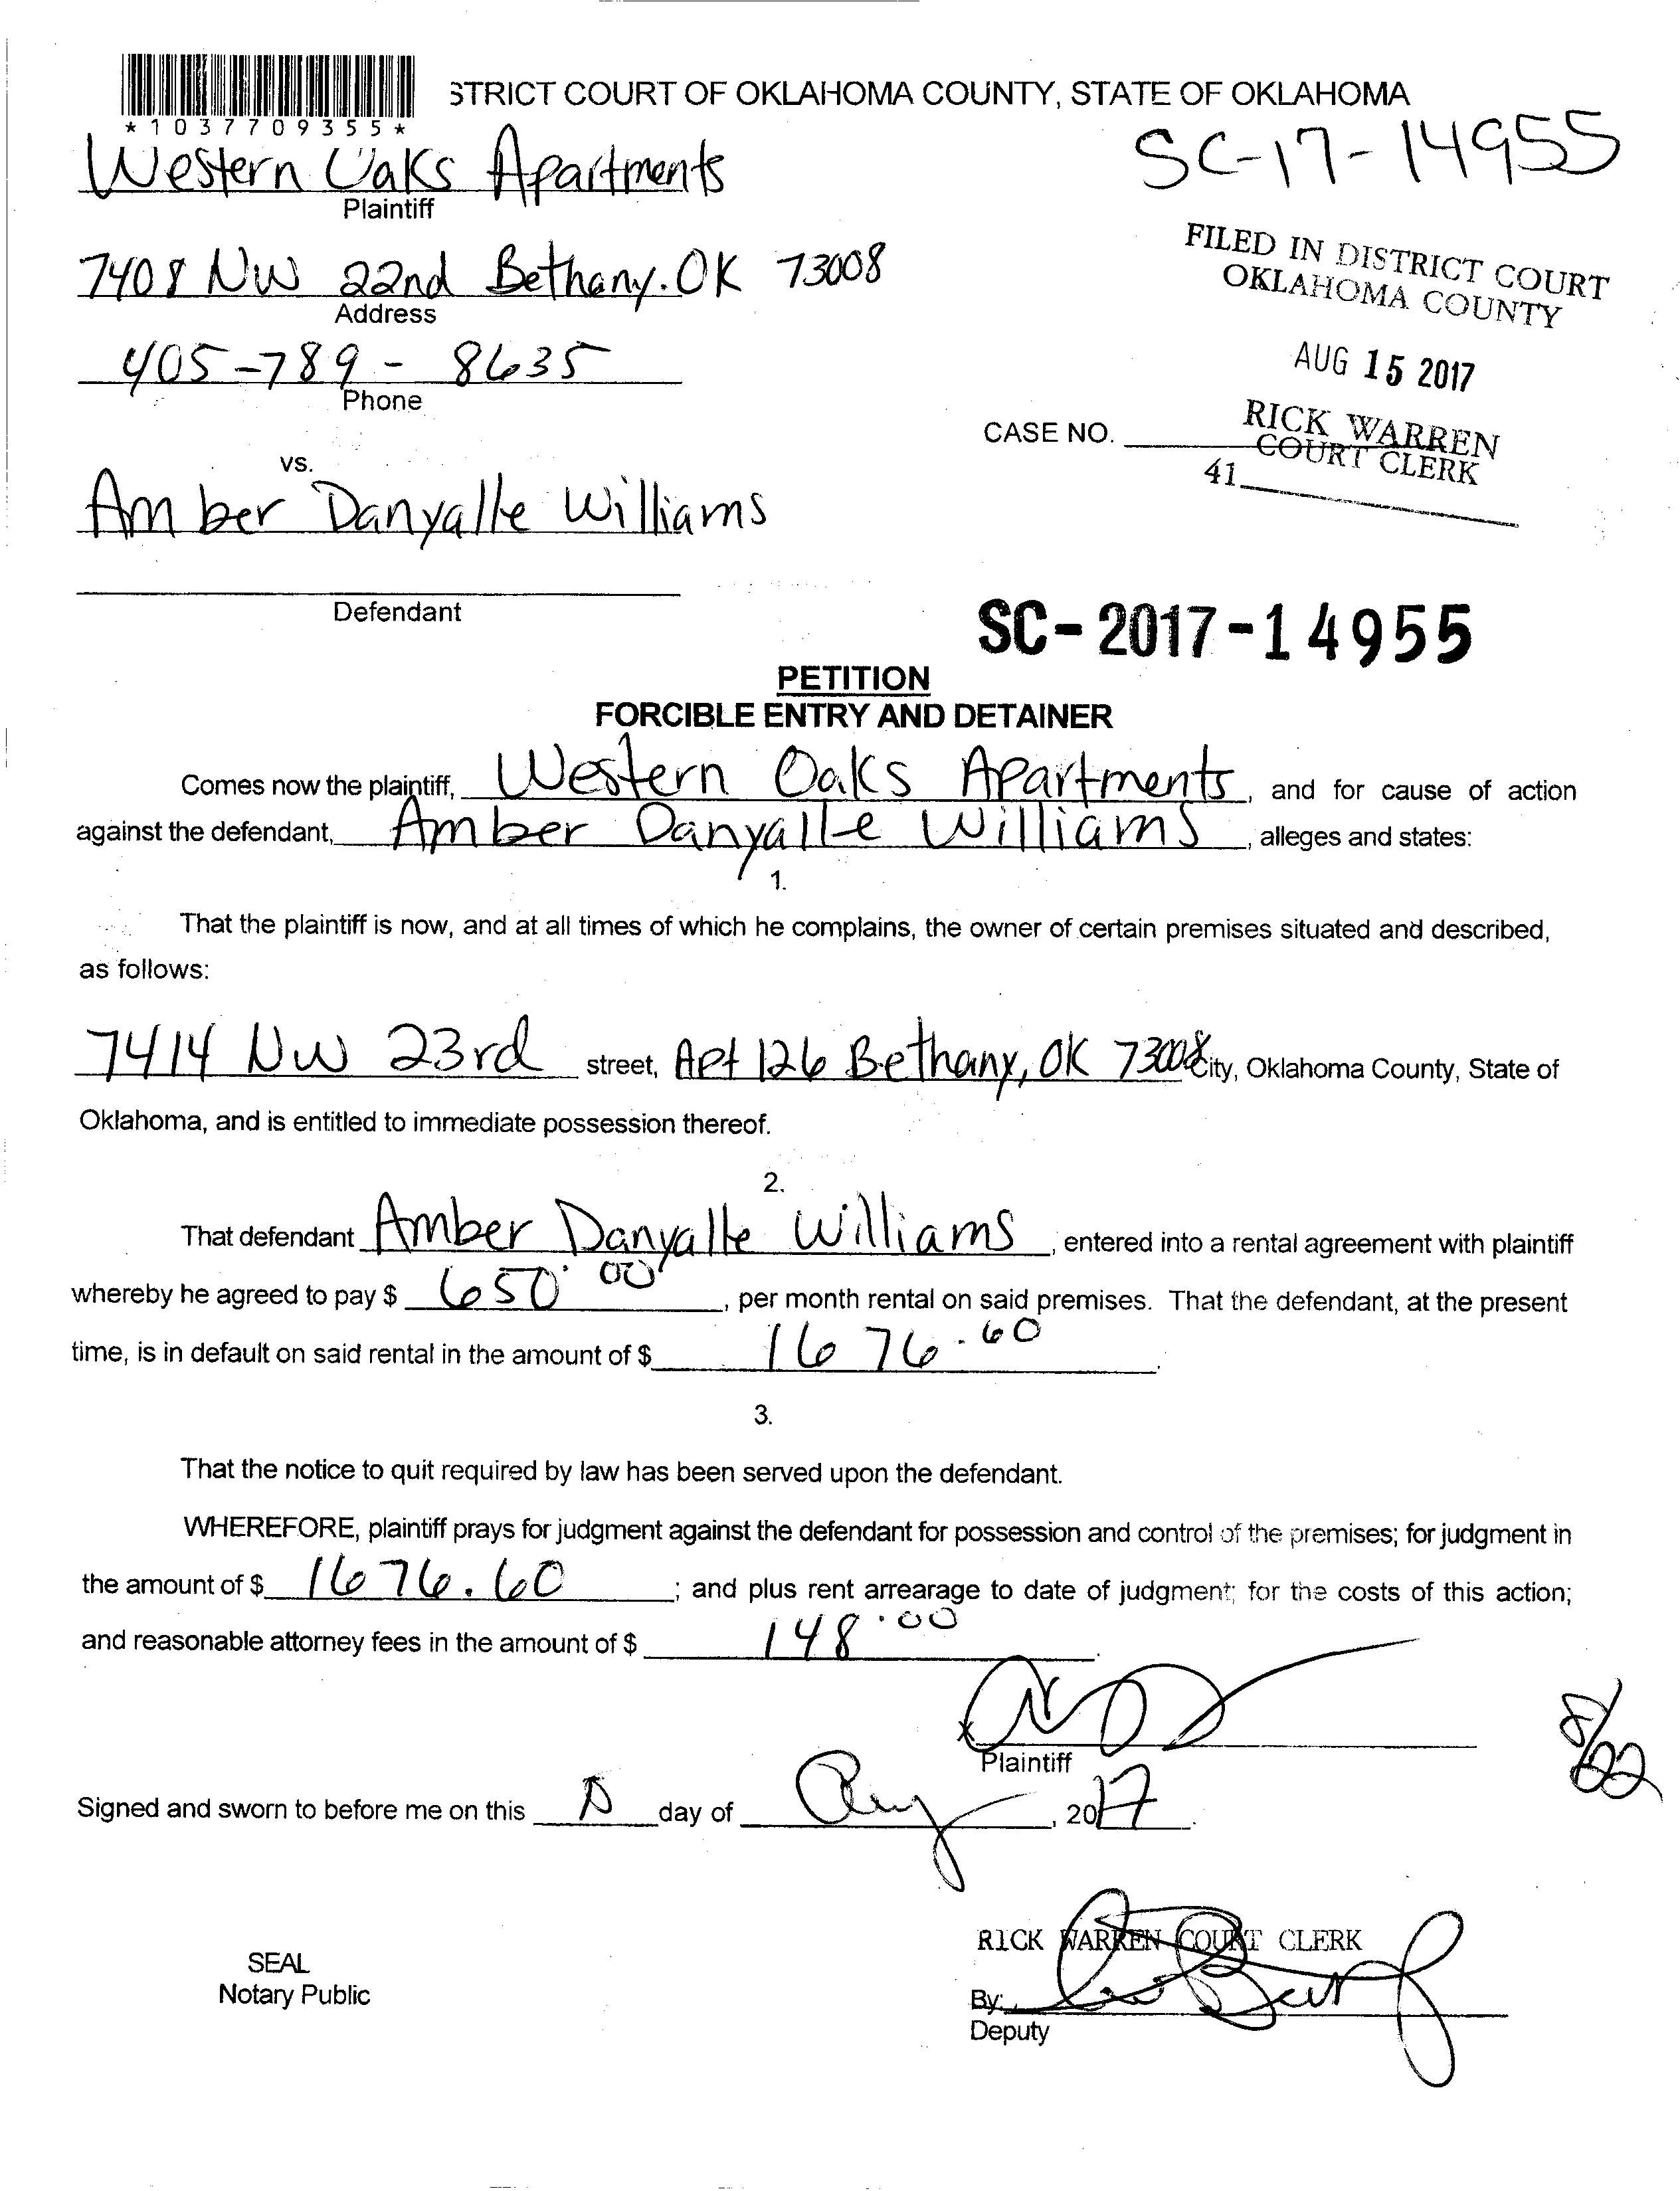 STRICT COURT OF OKLAHOMA COUNTY, STATE OF OKLAHOMA
*1037709355*
Western Oaks Apartments
SC-17-14955
Plaintiff
7408 NW 22nd Bethany. OK 73008
Address
FILED IN DISTRICT COURT
OKLAHOMA COUNTY
405-789-8635
Phone
AUG 15 2017
CASE NO.
RICK WARREN
COURT CLERK
41
vs.
Amber Danyalle Williams
Defendant
SC-2017-14955
PETITION
FORCIBLE ENTRY AND DETAINER
Comes now the plaintiff, Western Oaks Apartments, and for cause of action
against the defendant, Amber Danyalle Williams, alleges and states:
1.
That the plaintiff is now, and at all times of which he complains, the owner of certain premises situated and described,
as follows:
7414 NW 23rd street, Apt 126 Bethany, OK 73008 City, Oklahoma County, State of
Oklahoma, and is entitled to immediate possession thereof.
2.
That defendant Amber Danyalle Williams, entered into a rental agreement with plaintiff
whereby he agreed to pay $ 650.00, per month rental on said premises. That the defendant, at the present
time, is in default on said rental in the amount of $ 1676.60.
3.
That the notice to quit required by law has been served upon the defendant.
WHEREFORE, plaintiff prays for judgment against the defendant for possession and control of the premises; for judgment in
the amount of $ 1676.60; and plus rent arrearage to date of judgment; for the costs of this action;
and reasonable attorney fees in the amount of $ 148.00.
x
Plaintiff
8/22
Signed and sworn to before me on this day of Aug, 2017.
RICK WARREN COURT CLERK
SEAL
Notary Public
By:
Deputy